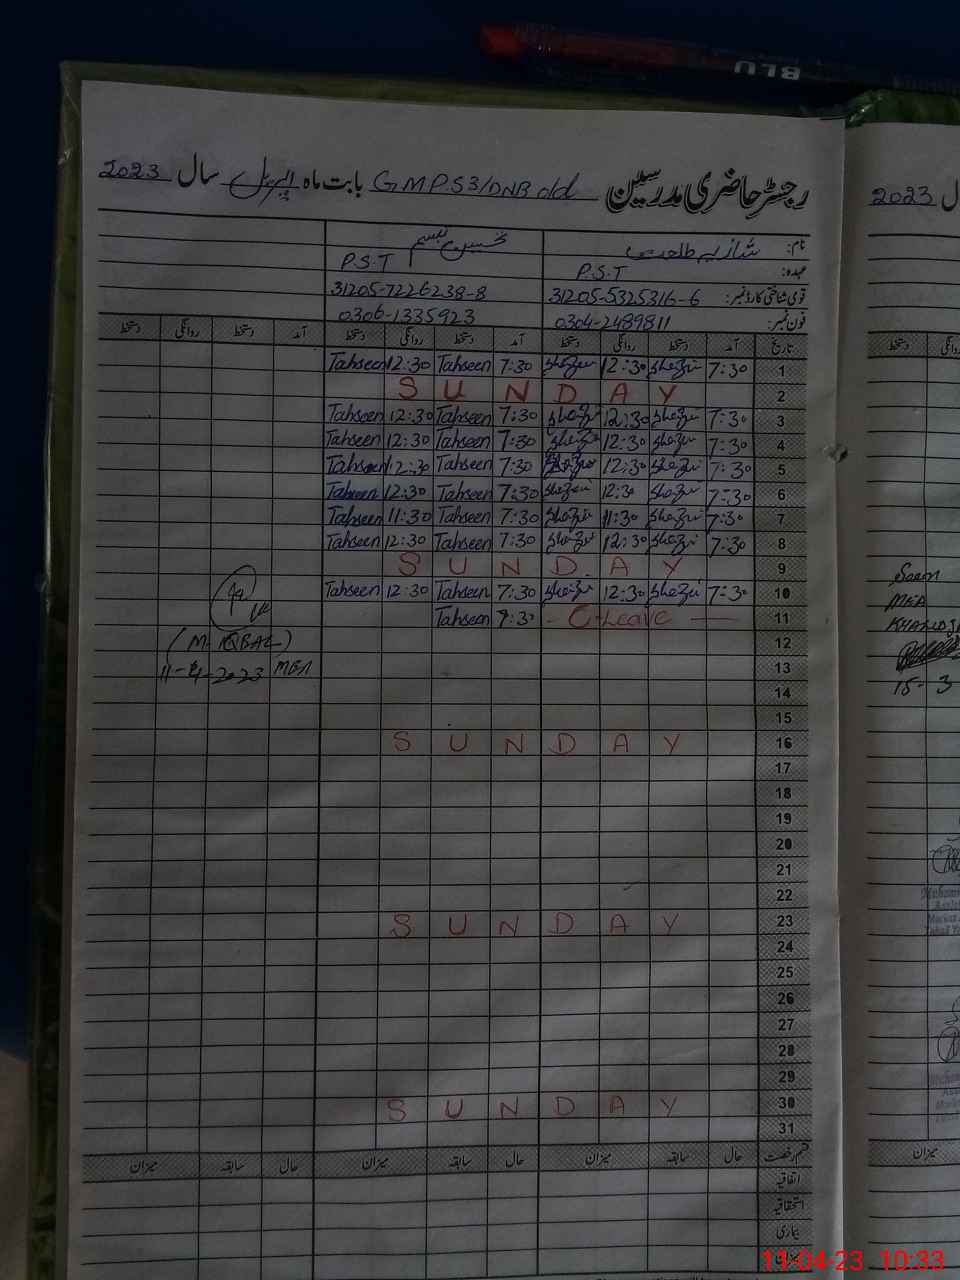 BLU
رجسٹر حاضری مدرسین G.M.P.S 31/DNB old بابت ماہ اپریل سال 2023
نام: شازیہ طلعت تحسین تبسم
عہدہ: P.S.T P.S.T
قومی شناختی کارڈ نمبر: 31205-5325316-6 31205-7226238-8
فون نمبر: 0304-2489811 0306-1335923
تاریخ آمد دستخط روانگی دستخط آمد دستخط روانگی دستخط آمد دستخط روانگی دستخط
1 7:30 Shazia 12:30 Shazia 7:30 Tahseen 12:30 Tahseen
2 SUNDAY
3 7:30 Shazia 12:30 Shazia 7:30 Tahseen 12:30 Tahseen
4 7:30 Shazia 12:30 Shazia 7:30 Tahseen 12:30 Tahseen
5 7:30 Shazia 12:30 Shazia 7:30 Tahseen 12:30 Tahseen
6 7:30 Shazia 12:30 Shazia 7:30 Tahseen 12:30 Tahseen
7 7:30 Shazia 11:30 Shazia 7:30 Tahseen 11:30 Tahseen
8 7:30 Shazia 12:30 Shazia 7:30 Tahseen 12:30 Tahseen
9 SUNDAY
10 7:30 Shazia 12:30 Shazia 7:30 Tahseen 12:30 Tahseen
11 C-Leave 7:30 Tahseen
12 (M. IQBAL)
13 MEA 11-4-2023
14
15
16 SUNDAY
17
18
19
20
21
22
23 SUNDAY
24
25
26
27
28
29
30 SUNDAY
31
قسم رخصت حال سابقہ میزان حال سابقہ میزان حال سابقہ میزان
اتفاقیہ
استحقاقیہ
بیماری
2023
دستخط
Seen
MEA
15-3
میزان
11-04-23 10:33